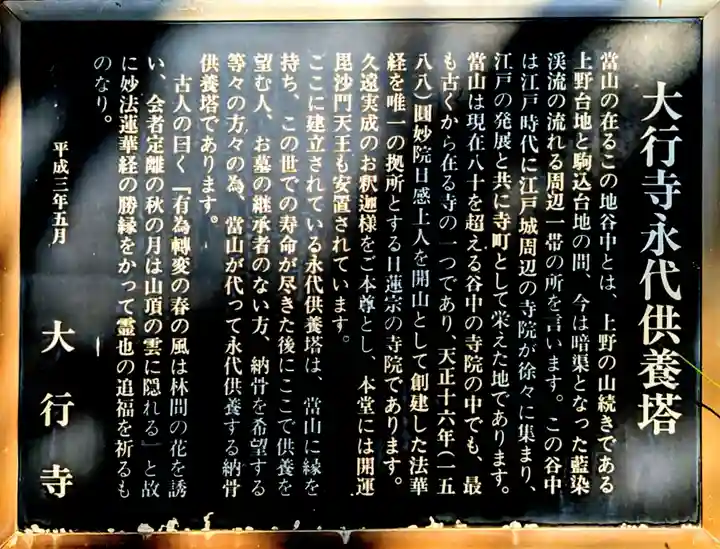 大行寺永代供養塔
當山の在るこの地谷中とは、上野の山続きである
上野台地と駒込台地の間、今は暗渠となった藍染
渓流の流れる周辺一帯の所を言います。この谷中
は江戸時代に江戸城周辺の寺院が徐々に集まり、
江戸の発展と共に寺町として栄えた地であります。
當山は現在八十を超える谷中の寺院の中でも、最
も古くから在る寺の一つであり、天正十六年(一五
八八)圓妙院日感上人を開山として創建した法華
経を唯一の拠所とする日蓮宗の寺院であります。
久遠実成のお釈迦様をご本尊とし、本堂には開運
毘沙門天王も安置されています。
ここに建立されている永代供養塔は、當山に縁を
持ち、この世での寿命が尽きた後にここで供養を
望む人、お墓の継承者のない方、納骨を希望する
等々の方々の為、當山が代って永代供養する納骨
供養塔であります。
古人の曰く「有為轉変の春の風は林間の花を誘
い、会者定離の秋の月は山頂の雲に隠れる」と故
に妙法蓮華経の勝縁をかって霊也の追福を祈るも
のなり。
平成三年五月
大行寺